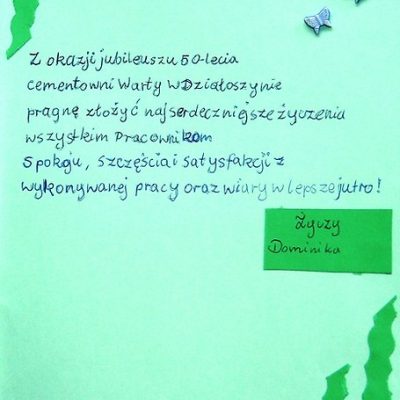 Z okazji jubileuszu 50-lecia
cementowni Warty w Działoszynie
pragnę złożyć najserdeczniejsze życzenia
wszystkim Pracownikom
Spokoju, szczęścia i satysfakcji z
wykonywanej pracy oraz wiary w lepsze jutro!
Życzy
Dominika